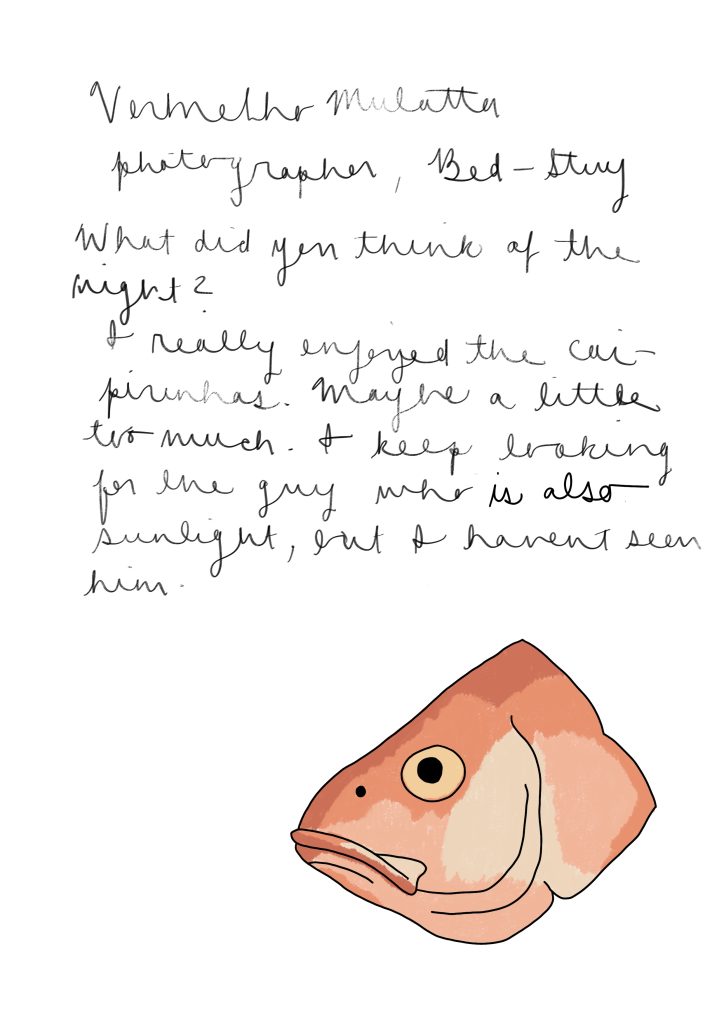 Vermelho Mulatta
photographer, Bed-Stuy
What did you think of the
night?
I really enjoyed the cai-
pirinhas. Maybe a little
too much. I keep looking
for the guy who is also
sunlight, but I haven't seen
him.